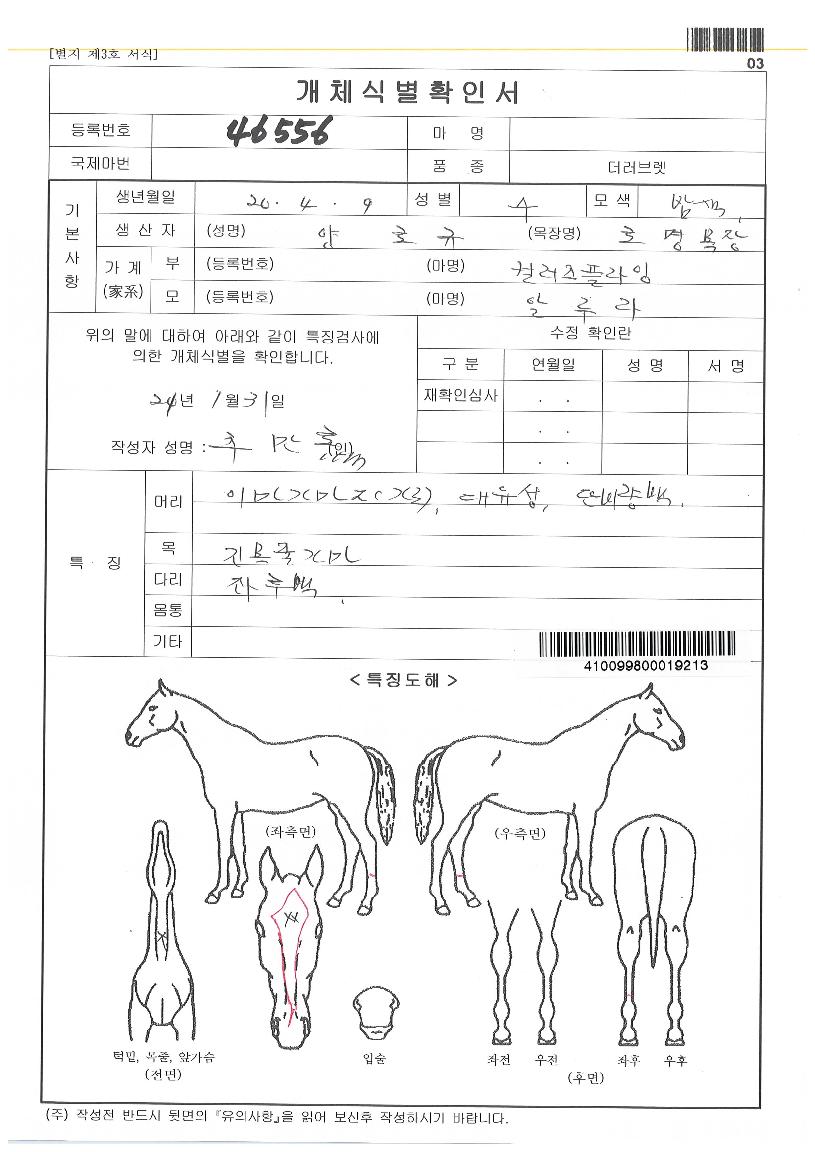 [별지 제3호 서식]
03
개체식별확인서
등록번호 46556 마 명
국제아번 품 종 더러브렛
기본사항
생년월일 20 . 4 . 9 성 별 수 모 색 밤색
생 산 자 (성명) 양 호 규 (목장명) 호 명 목장
가 계 (家系) 부 (등록번호) (마명) 컬러즈플라잉
모 (등록번호) (미명) 알 루 라
위의 말에 대하여 아래와 같이 특징검사에
의한 개체식별을 확인합니다.
년 1월 31일
작성자 성명 : 추 만 호 (인)
수정 확인란
구 분 연월일 성 명 서 명
재확인심사 . .
. .
. .
특 징
머리
목
다리 좌후백
몸통
기타
410099800019213
< 특징도해 >
(좌측면) (우측면)
턱밑, 목줄, 앞가슴
(전면)
입술
좌전 우전 좌후 우후
(후면)
(주) 작성전 반드시 뒷면의 『유의사항』을 읽어 보신후 작성하시기 바랍니다.